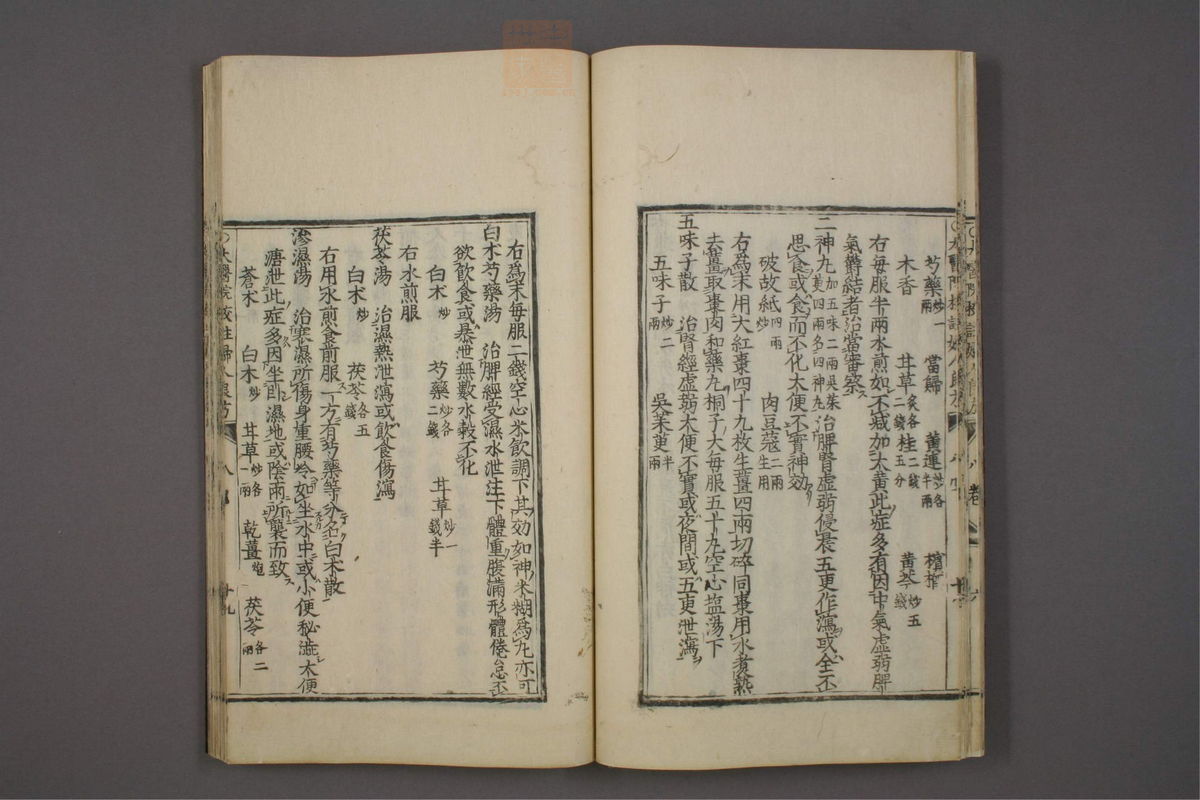 芍藥炒一兩 當歸 黃連炒各半兩 檳榔
木香 甘草炙各二錢 桂二錢五分 黃芩炒五錢
右每服半兩水煎如不减加大黃此症多有因中氣虛弱脾
氣欝結者治當審察
二神丸加五味二兩吳茱萸四兩名四神丸治脾腎虛弱侵晨五更作瀉或全不
思食或食而不化大便不實神効
破故紙四兩炒 肉豆蔻二兩生用
右爲末用大紅棗四十九枚生薑四兩切碎同棗用水煮熟
去薑取棗肉和藥丸桐子大每服五十丸空心塩湯下
五味子散 治腎經虛弱大便不實或夜間或五更泄瀉
五味子炒二兩 吳茱萸半兩
右爲末每服二錢空心米飲調下其効如神米糊爲丸亦可
白朮芍藥湯 治脾經受濕水泄注下體重腹滿形體倦怠不
欲飲食或暴泄無數水穀不化
白朮炒 芍藥炒各二錢 甘草炒一錢半
右水煎服
茯苓湯 治濕熱泄瀉或飲食傷瀉
白朮炒 茯苓各五錢
右用水煎食前服一方有芍藥等分名白朮散
滲濕湯 治寒濕所傷身重腰冷如坐水中或小便秘澁大便
溏泄此症多因坐卧濕地或陰雨所襲而致
蒼朮 白朮炒 甘草炒各一兩 乾薑炮 茯苓各二兩
○太醫院校註婦人良方 八 十九